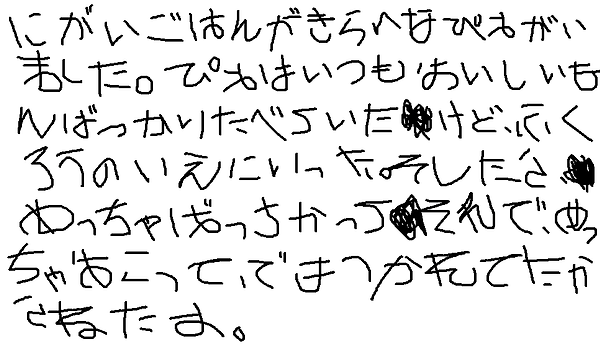 にがいごはんがきらへなぴねがい
ました。ぴかはいつもおいしいも
んばっかりたべていたけど、ふく
ろうのいえにいった。そしたら
めっちゃばっちかってそれで、めっ
ちゃおこって、ではつかれてたか
らねたよ。